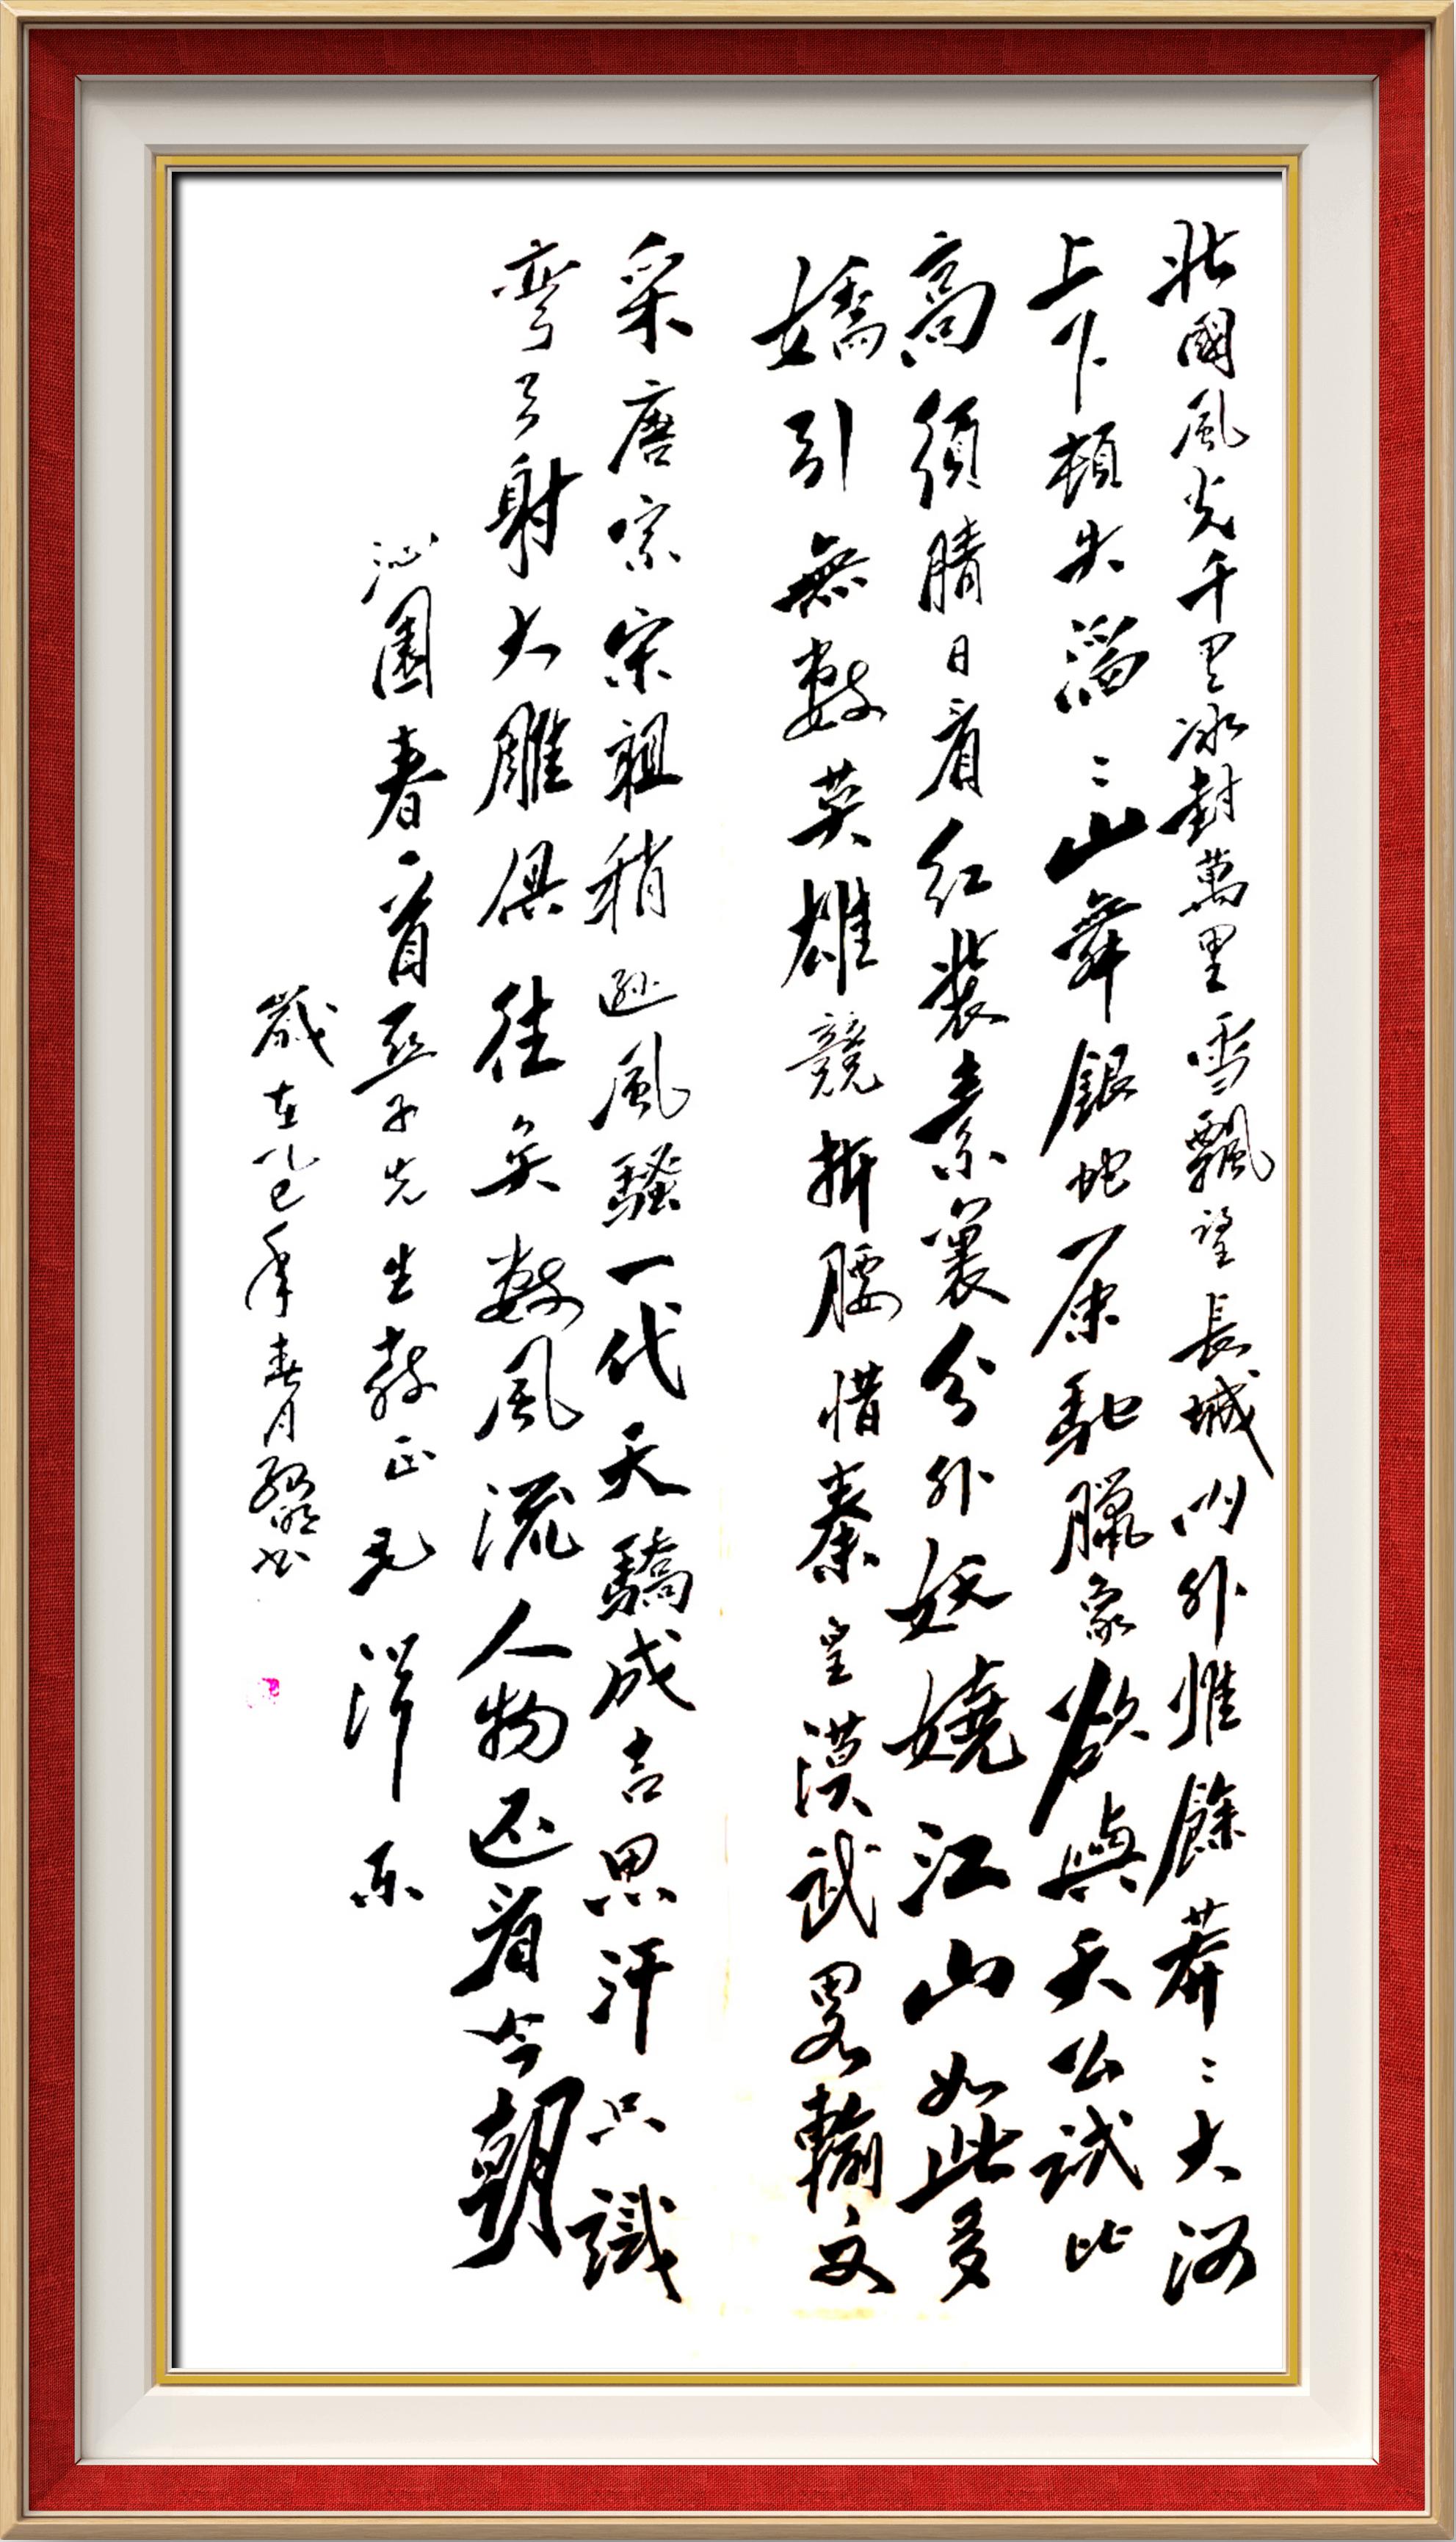 北國風光千里冰封萬里雪飄望長城內外惟餘莽〻大河
上下頓失滔〻山舞銀蛇原馳臘象欲與天公試比
高須晴日看红裝素裹分外妖嬈江山如此多
嬌引無數英雄競折腰惜秦皇漢武畧輸文
采唐宗宋祖稍遜風騷一代天驕成吉思汗只識
弯弓射大雕俱往矣數風流人物还看今朝
沁園春一首亞子先生教正毛澤东
歲在乙巳年春月书